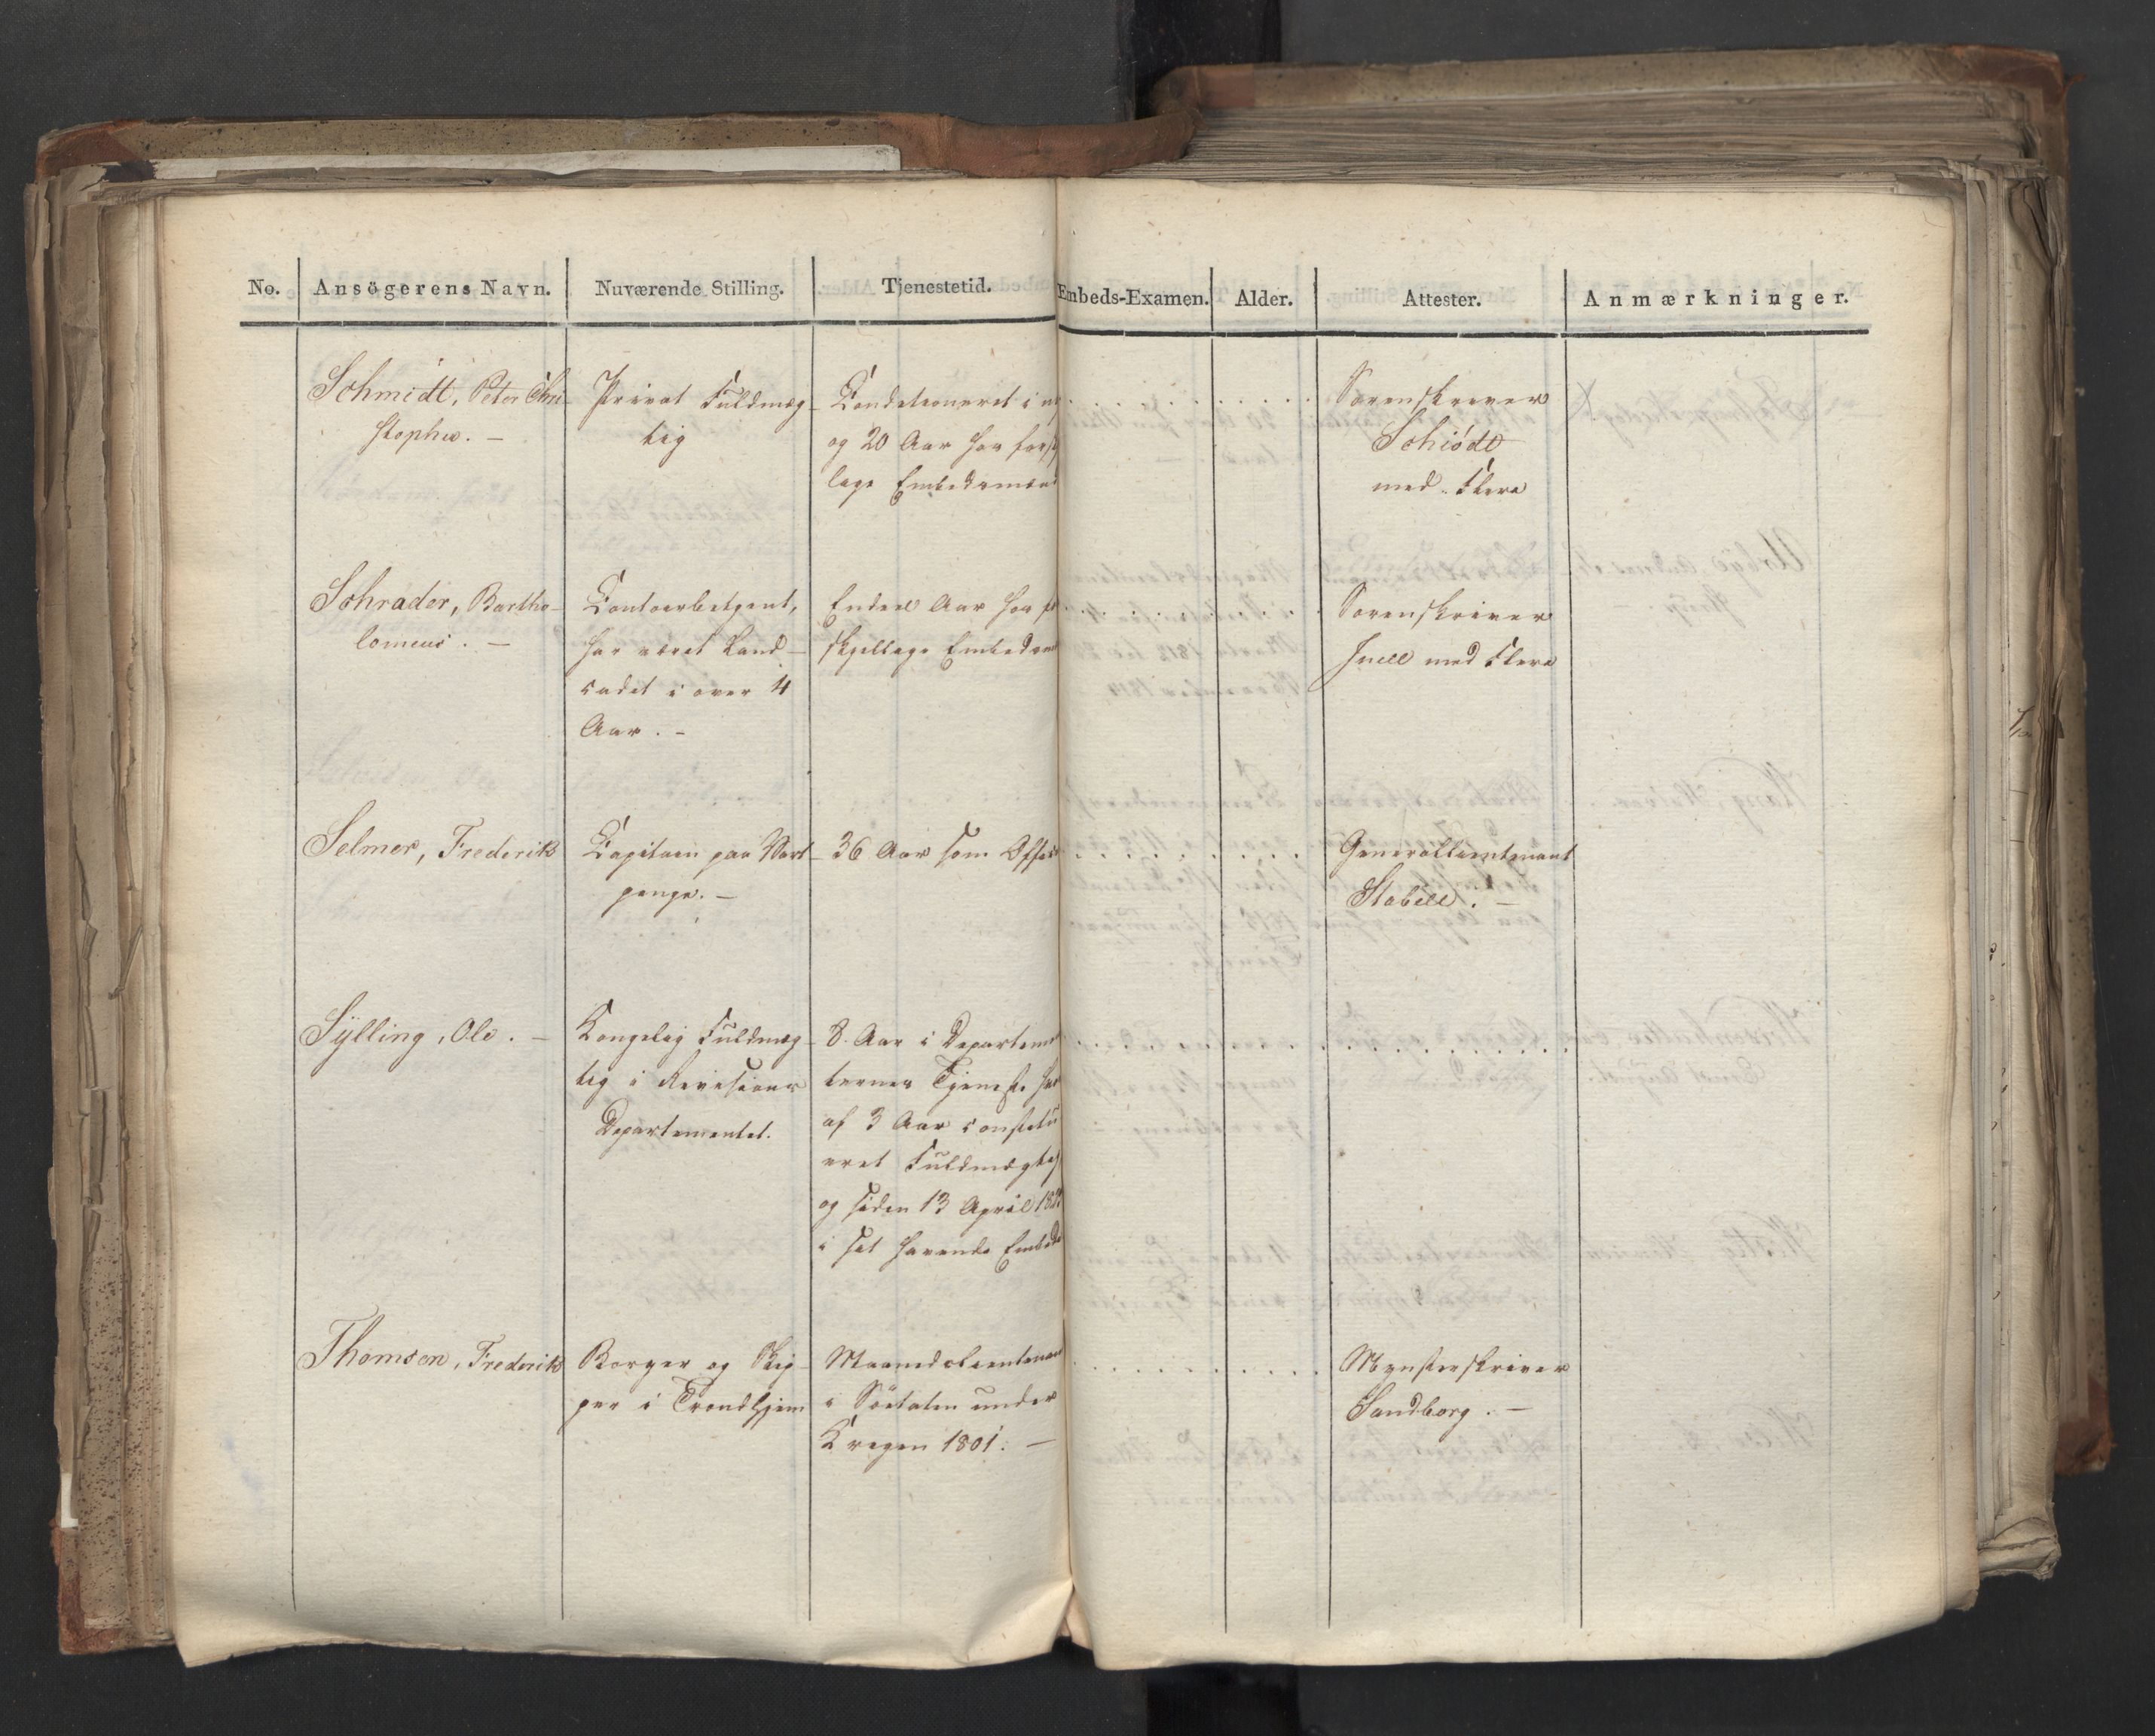 No. Ansögerens Navn. Nuværende Stilling. Tjenestetid. Embeds-Examen. Alder. Attester. Anmærkninger.
Schmidt, Peter Chri-
stopher. —
Privat Fuldmæg-
tig
Conditioneret i
og 20 Aar hos forskj
lige Embedsmænd
Sorenskriver
Schiödt
med Flere
Schrader, Bartho-
lomeus. —
Contoirbetjent,
har været Land-
cadet i over 4
Aar. —
Endeel Aar hos
skjellige Embedsm
Sorenskriver
Juell med Flere
Selmer, Frederik
Capitain paa Vart-
penge. —
36 Aar som Offic
Generallieutenant
Stabell. —
Sylling, Ole. —
Kongelig Fuldmæg-
tig i Revisions
Departementet.
8 Aar i Departemen
ternes Tjeneste her
af 3 Aar constitu
eret Fuldmægtig
og siden 13 April
i sit havende Embede
Thomson, Frederik
Borger og Skip-
per i Trondhjem
Maanedslieutenant
i Söetaten under
Krigen 1801. —
Mynsterskriver
Sandborg. —